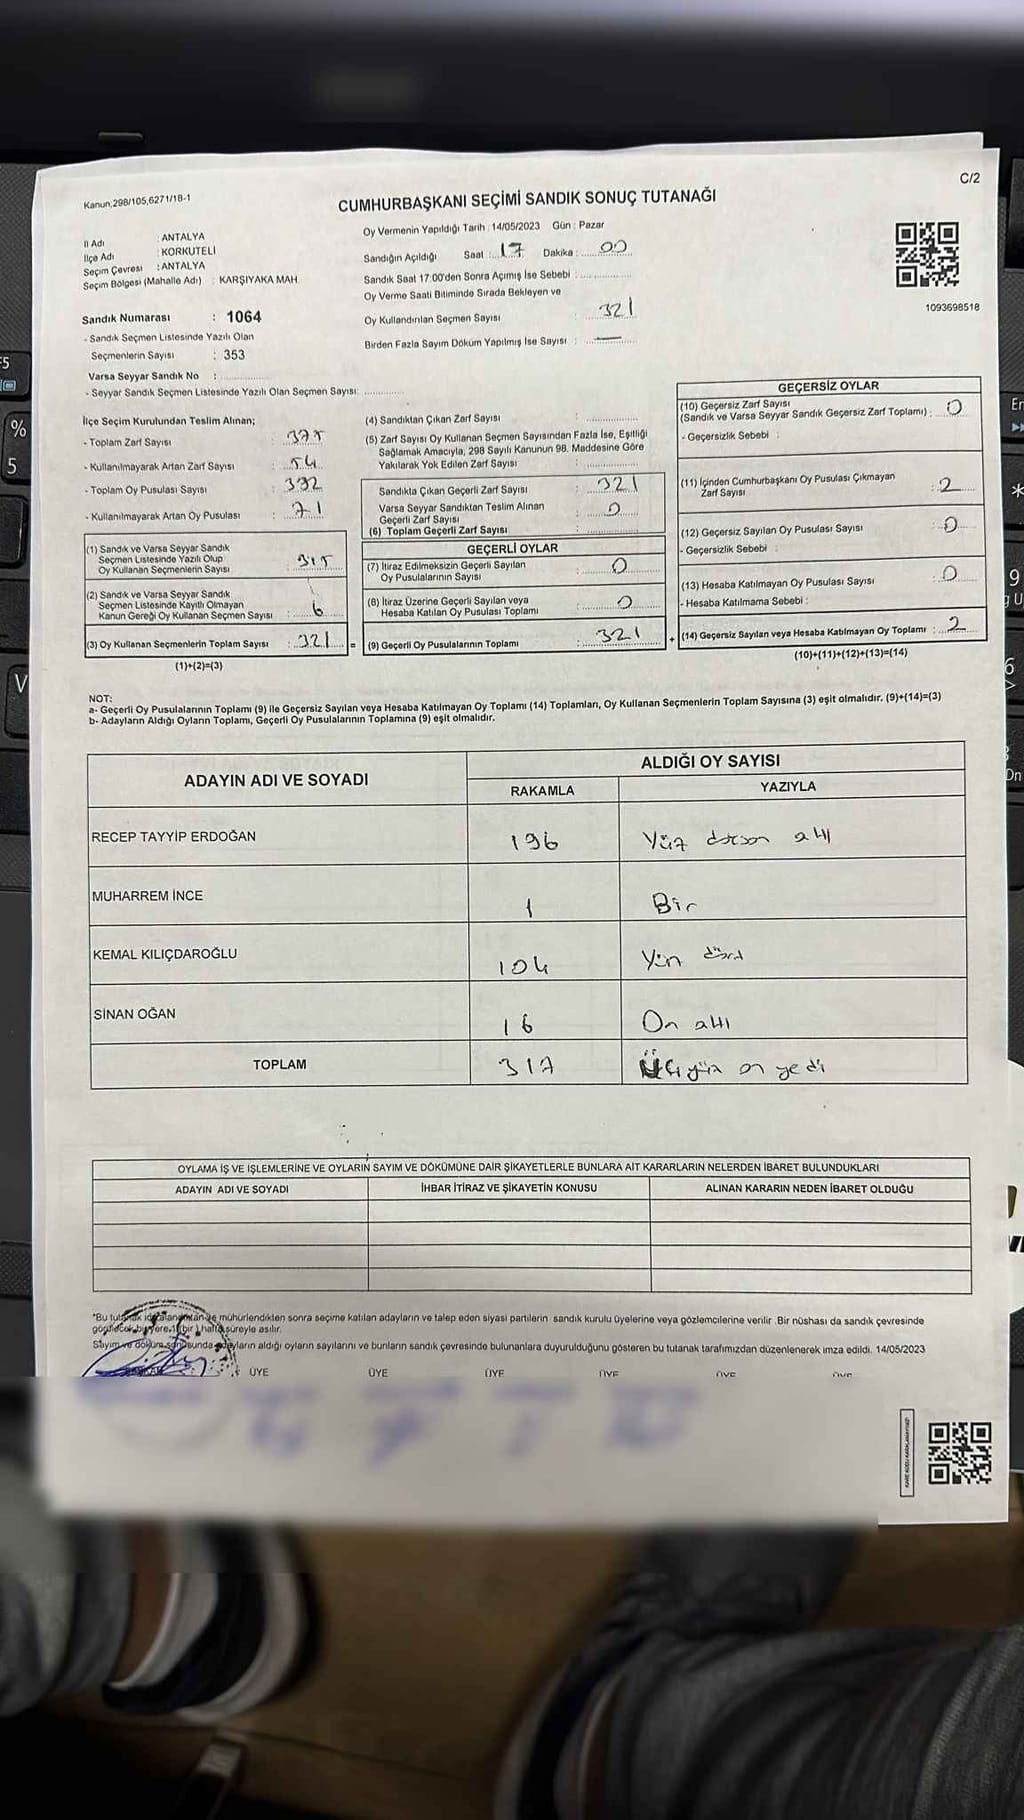 C/2
Kanun,298/105,6271/18-1
CUMHURBAŞKANI SEÇİMİ SANDIK SONUÇ TUTANAĞI
İl Adı : ANTALYA
İlçe Adı : KORKUTELİ
Seçim Çevresi : ANTALYA
Seçim Bölgesi (Mahalle Adı) : KARŞIYAKA MAH
Oy Vermenin Yapıldığı Tarih : 14/05/2023 Gün : Pazar
Sandığın Açıldığı Saat : 17 Dakika : 00
Sandık Saat 17:00'den Sonra Açımış İse Sebebi :
Oy Verme Saati Bitiminde Sırada Bekleyen ve
Oy Kullandırılan Seçmen Sayısı : 321
Birden Fazla Sayım Döküm Yapılmış İse Sayısı : —
1093698518
Sandık Numarası : 1064
- Sandık Seçmen Listesinde Yazılı Olan
Seçmenlerin Sayısı : 353
Varsa Seyyar Sandık No :
- Seyyar Sandık Seçmen Listesinde Yazılı Olan Seçmen Sayısı:
İlçe Seçim Kurulundan Teslim Alınan;
- Toplam Zarf Sayısı : 375
- Kullanılmayarak Artan Zarf Sayısı : 54
- Toplam Oy Pusulası Sayısı : 392
- Kullanılmayarak Artan Oy Pusulası : 71
(1) Sandık ve Varsa Seyyar Sandık
Seçmen Listesinde Yazılı Olup
Oy Kullanan Seçmenlerin Sayısı : 315
(2) Sandık ve Varsa Seyyar Sandık
Seçmen Listesinde Kayıtlı Olmayan
Kanun Gereği Oy Kullanan Seçmen Sayısı : 6
(3) Oy Kullanan Seçmenlerin Toplam Sayısı : 321 =
(1)+(2)=(3)
(4) Sandıktan Çıkan Zarf Sayısı :
(5) Zarf Sayısı Oy Kullanan Seçmen Sayısından Fazla İse, Eşitliği
Sağlamak Amacıyla, 298 Sayılı Kanunun 98. Maddesine Göre
Yakılarak Yok Edilen Zarf Sayısı :
Sandıkta Çıkan Geçerli Zarf Sayısı : 321
Varsa Seyyar Sandıktan Teslim Alınan
Geçerli Zarf Sayısı : 0
(6) Toplam Geçerli Zarf Sayısı :
GEÇERLİ OYLAR
(7) İtiraz Edilmeksizin Geçerli Sayılan
Oy Pusulalarının Sayısı : 0
(8) İtiraz Üzerine Geçerli Sayılan veya
Hesaba Katılan Oy Pusulası Toplamı : 0
(9) Geçerli Oy Pusulalarının Toplamı : 321 +
GEÇERSİZ OYLAR
(10) Geçersiz Zarf Sayısı
(Sandık ve Varsa Seyyar Sandık Geçersiz Zarf Toplamı) : 0
- Geçersizlik Sebebi :
(11) İçinden Cumhurbaşkanı Oy Pusulası Çıkmayan
Zarf Sayısı : 2
(12) Geçersiz Sayılan Oy Pusulası Sayısı : 0
- Geçersizlik Sebebi :
(13) Hesaba Katılmayan Oy Pusulası Sayısı : 0
- Hesaba Katılmama Sebebi :
(14) Geçersiz Sayılan veya Hesaba Katılmayan Oy Toplamı : 2
(10)+(11)+(12)+(13)=(14)
NOT:
a- Geçerli Oy Pusulalarının Toplamı (9) ile Geçersiz Sayılan veya Hesaba Katılmayan Oy Toplamı (14) Toplamları, Oy Kullanan Seçmenlerin Toplam Sayısına (3) eşit olmalıdır. (9)+(14)=(3)
b- Adayların Aldığı Oyların Toplamı, Geçerli Oy Pusulalarının Toplamına (9) eşit olmalıdır.
ADAYIN ADI VE SOYADI ALDIĞI OY SAYISI
RAKAMLA YAZIYLA
RECEP TAYYİP ERDOĞAN 196 Yüz doksan altı
MUHARREM İNCE 1 Bir
KEMAL KILIÇDAROĞLU 104 Yüz dört
SİNAN OĞAN 16 On altı
TOPLAM 317 Üçyüz on yedi
OYLAMA İŞ VE İŞLEMLERİNE VE OYLARIN SAYIM VE DÖKÜMÜNE DAİR ŞİKAYETLERLE BUNLARA AİT KARARLARIN NELERDEN İBARET BULUNDUKLARI
ADAYIN ADI VE SOYADI İHBAR İTİRAZ VE ŞİKAYETİN KONUSU ALINAN KARARIN NEDEN İBARET OLDUĞU
*Bu mühürlendikten sonra seçime katılan adayların ve talep eden siyasi partilerin sandık kurulu üyelerine veya gözlemcilerine verilir. Bir nüshası da sandık çevresinde
görülecek bir yere 1 (bir) hafta süreyle asılır.
Sayım ve döküm sonusunda adayların aldığı oyların sayılarını ve bunların sandık çevresinde bulunanlara duyurulduğunu gösteren bu tutanak tarafımızdan düzenlenerek imza edildi. 14/05/2023
ÜYE ÜYE ÜYE ÜYE ÜYE ÜYE